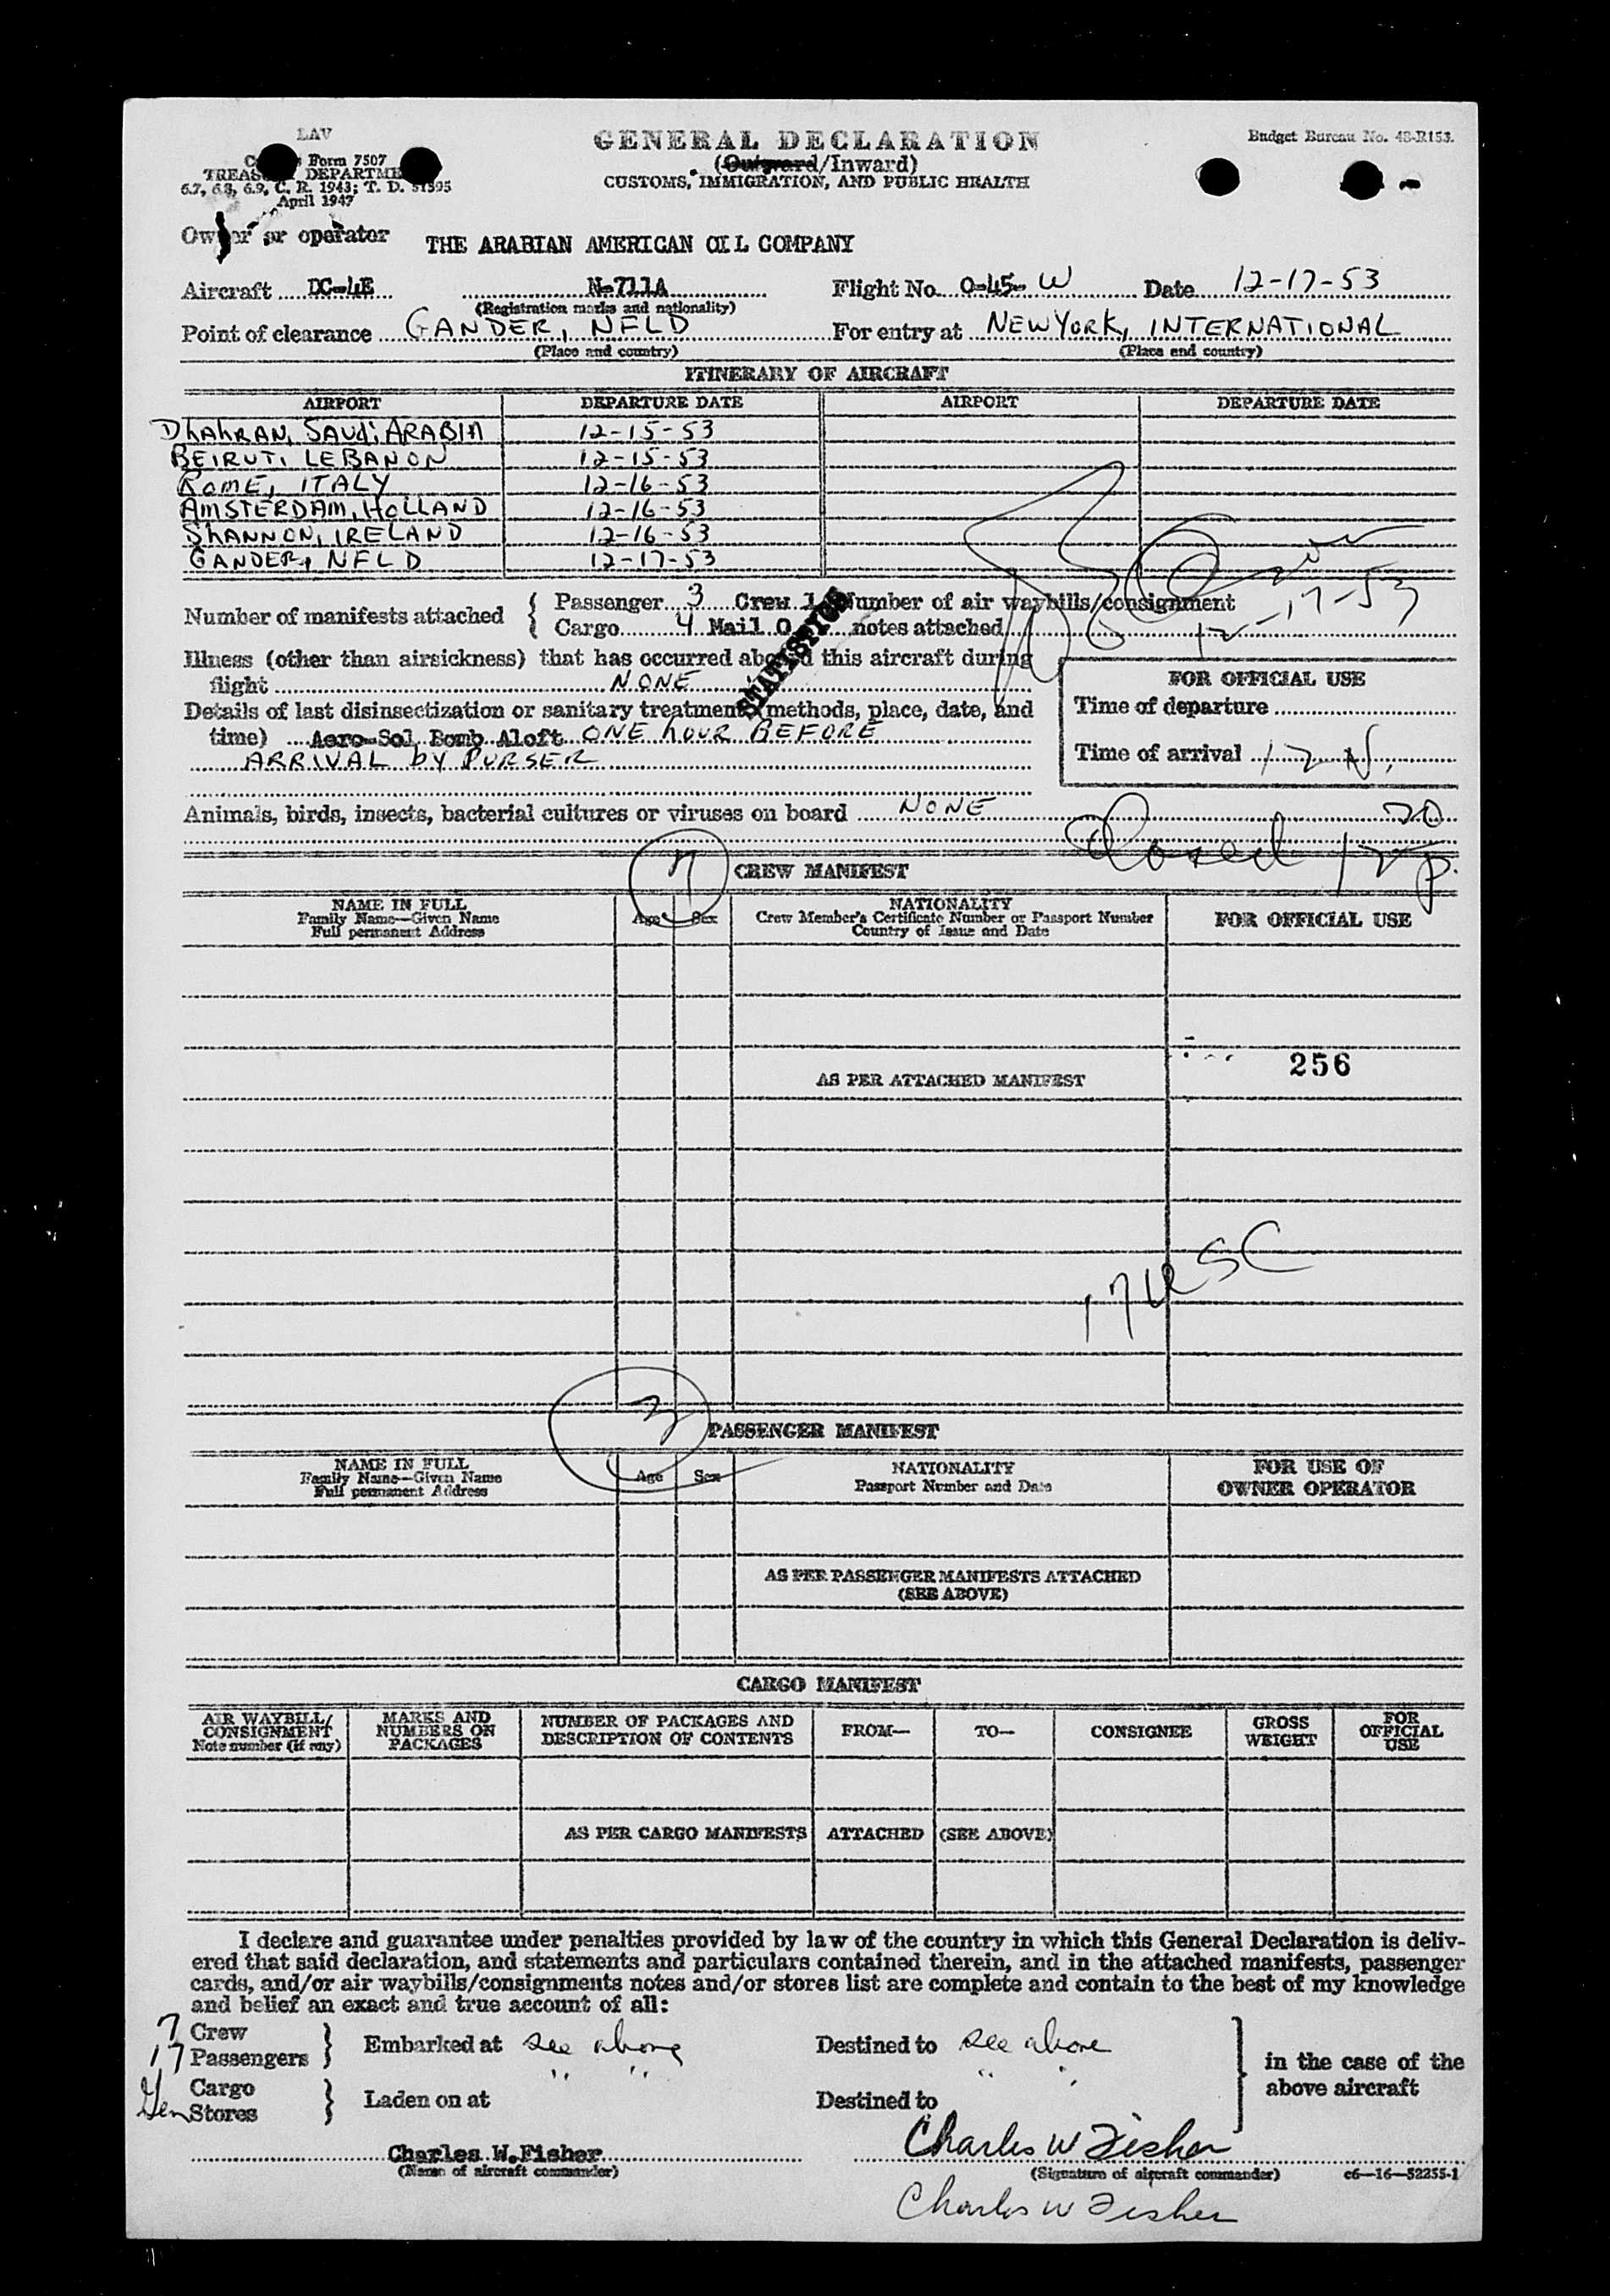 LAV
GENERAL DECLARATION
Budget Bureau No. 48-R153.
Form 7507
(Outward/Inward)
TREAS DEPARTME
CUSTOMS, IMMIGRATION, AND PUBLIC HEALTH
6.7, 6.8, 6.9, C. R. 1943; T. D. 51595
April 1947
or operator THE ARABIAN AMERICAN OIL COMPANY
Aircraft DC-4E N-711A Flight No. O-45-W Date 12-17-53
(Registration marks and nationality)
Point of clearance GANDER, NFLD For entry at NEW YORK, INTERNATIONAL
(Place and country) (Place and country)
ITINERARY OF AIRCRAFT
AIRPORT DEPARTURE DATE AIRPORT DEPARTURE DATE
DhAhRAN, SAUdi ARABIA 12-15-53
BEIRUT, LEBANON 12-15-53
ROME, ITALY 12-16-53
AMSTERDAM, HOLLAND 12-16-53
ShANNON, IRELAND 12-16-53
GANDER, NFLD 12-17-53
Number of manifests attached { Passenger 3 Crew 1 Number of air waybills/consignment
Cargo 4 Mail 0 notes attached
12-17-53
STATISTICS
Illness (other than airsickness) that has occurred aboard this aircraft during
flight NONE
FOR OFFICIAL USE
Details of last disinsectization or sanitary treatment (methods, place, date, and
Time of departure
time) Aero-Sol Bomb Aloft ONE hOUR BEFORE
ARRIVAL bY PURSER
Time of arrival 12 N.
Animals, birds, insects, bacterial cultures or viruses on board NONE
Closed 12 20 p.
7
CREW MANIFEST
NAME IN FULL
Family Name—Given Name
Full permanent Address
Age Sex
NATIONALITY
Crew Member's Certificate Number or Passport Number
Country of Issue and Date
FOR OFFICIAL USE
256
AS PER ATTACHED MANIFEST
17 USC
3
PASSENGER MANIFEST
NAME IN FULL
Family Name—Given Name
Full permanent Address
Age Sex
NATIONALITY
Passport Number and Date
FOR USE OF
OWNER OPERATOR
AS PER PASSENGER MANIFESTS ATTACHED
(SEE ABOVE)
CARGO MANIFEST
AIR WAYBILL/
CONSIGNMENT
Note number (if any)
MARKS AND
NUMBERS ON
PACKAGES
NUMBER OF PACKAGES AND
DESCRIPTION OF CONTENTS
FROM—
TO—
CONSIGNEE
GROSS
WEIGHT
FOR
OFFICIAL
USE
AS PER CARGO MANIFESTS ATTACHED (SEE ABOVE)
I declare and guarantee under penalties provided by law of the country in which this General Declaration is deliv-
ered that said declaration, and statements and particulars contained therein, and in the attached manifests, passenger
cards, and/or air waybills/consignments notes and/or stores list are complete and contain to the best of my knowledge
and belief an exact and true account of all:
7 Crew
17 Passengers } Embarked at see above Destined to see above
in the case of the
above aircraft
Cargo
Gen Stores } Laden on at " " Destined to " "
Charles W. Fisher Charles W Fisher
(Name of aircraft commander) (Signature of aircraft commander) c6—16—52255-1
Charles W Fisher